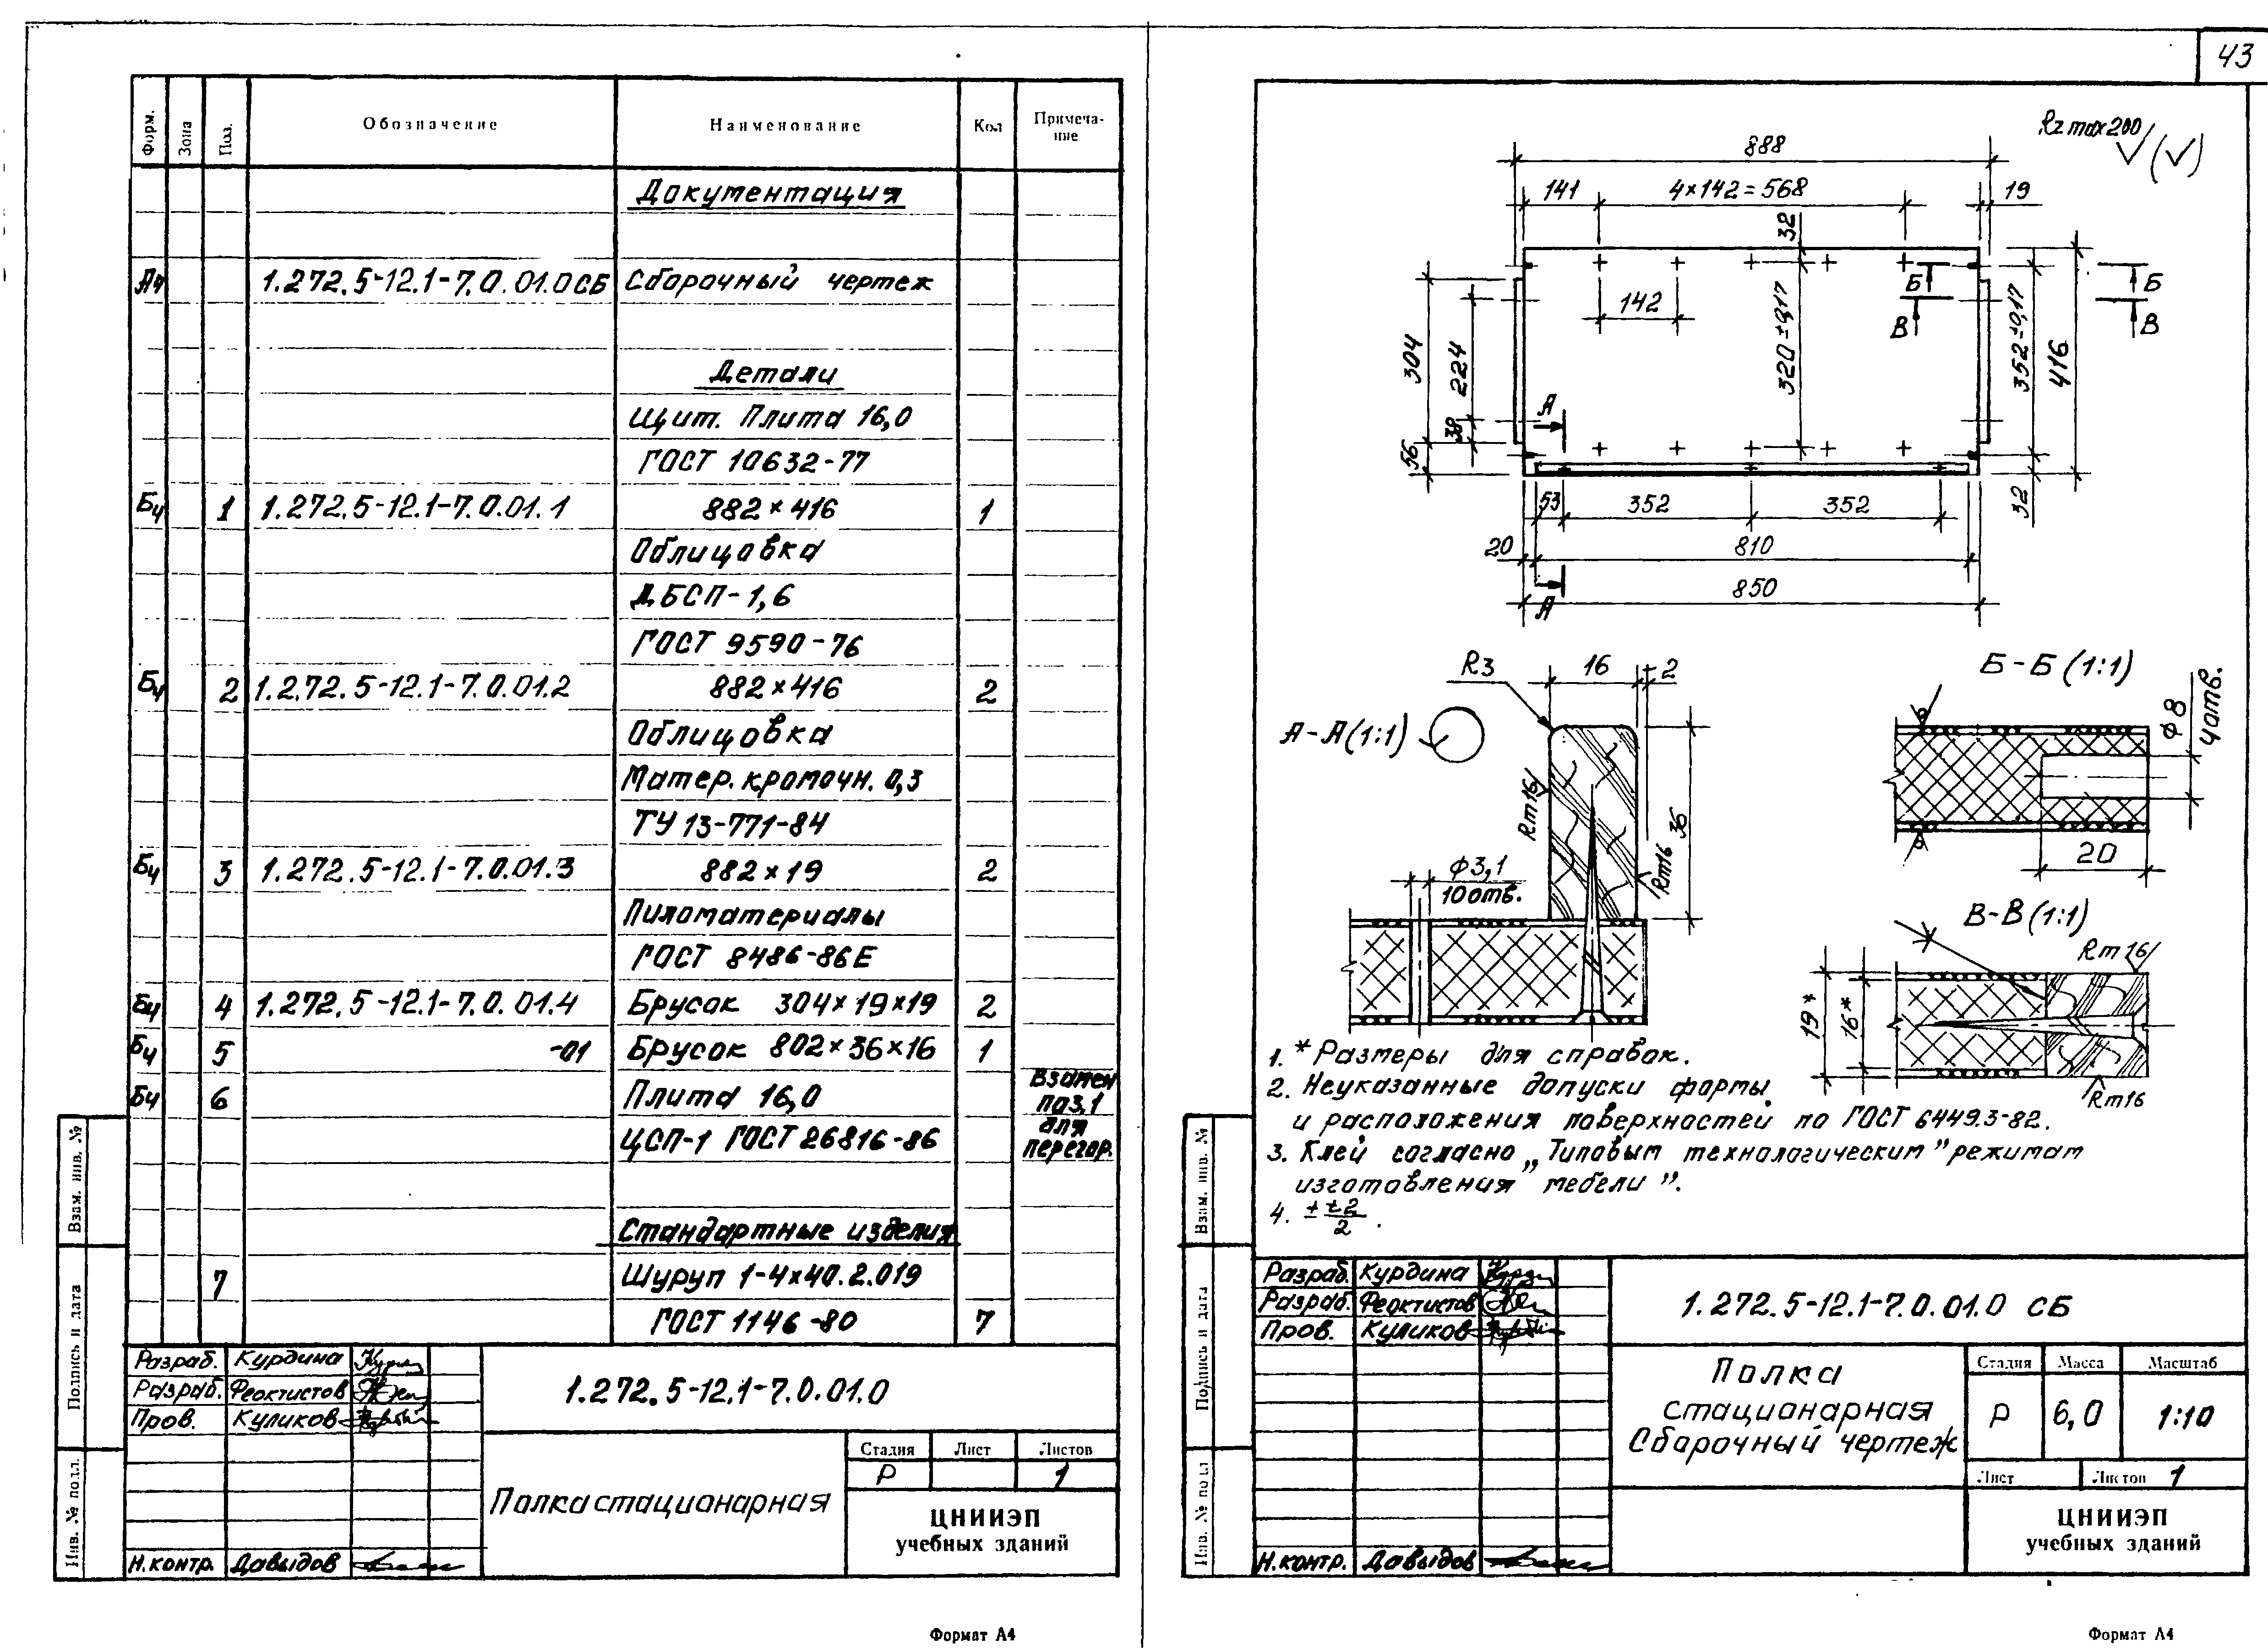 43
Форм.
Зона
Поз.
Обозначение
Наименование
Кол
Примеча-
ние
Документация
А4 1.272.5-12.1-7.0.01.0СБ Сборочный чертеж
Детали
Щит. Плита 16,0
ГОСТ 10632-77
Бч 1 1.272.5-12.1-7.0.01.1 882×416 1
Облицовка
ДБСП-1,6
ГОСТ 9590-76
Бч 2 1.272.5-12.1-7.0.01.2 882×416 2
Облицовка
Матер. кромочн. 0,3
ТУ 13-771-84
Бч 3 1.272.5-12.1-7.0.01.3 882×19 2
Пиломатериалы
ГОСТ 8486-86Е
Бч 4 1.272.5-12.1-7.0.01.4 Брусок 304×19×19 2
Бч 5 -01 Брусок 802×36×16 1
Бч 6 Плита 16,0 Взамен
поз.1
ЦСП-1 ГОСТ 26816-86 для
перегор.
Стандартные изделия
7 Шуруп 1-4×40.2.019
ГОСТ 1146-80 7
Взам. инв. №
Подпись и дата
Инв. № подл.
Разраб. Курдина
Разраб. Феоктистов
Пров. Куликов
Н.контр. Давыдов
1.272.5-12.1-7.0.01.0
Полка стационарная
Стадия Лист Листов
Р 1
ЦНИИЭП
учебных зданий
Формат А4
Rz max 200
888
141 4×142=568 19
32
142
304
224
38
56
320±0,17
352±0,17
416
32
Б Б
В В
А
53 352 352
20 810
850
А
А-А (1:1)
R3 16 2
36
Rm16
Rm16
ф3,1
10 отв.
Б-Б (1:1)
ф8
4 отв.
20
В-В (1:1)
Rm 16
19*
16*
Rm16
1. *Размеры для справок.
2. Неуказанные допуски формы
и расположения поверхностей по ГОСТ 6449.3-82.
3. Клей согласно „Типовым технологическим" режимам
изготовления мебели".
4. ± ±2/2.
Взам. инв. №
Подпись и дата
Инв. № подл
Разраб. Курдина
Разраб. Феоктистов
Пров. Куликов
Н.контр. Давыдов
1.272.5-12.1-7.0.01.0 СБ
Полка
стационарная
Сборочный чертеж
Стадия Масса Масштаб
Р 6,0 1:10
Лист Листов 1
ЦНИИЭП
учебных зданий
Формат А4